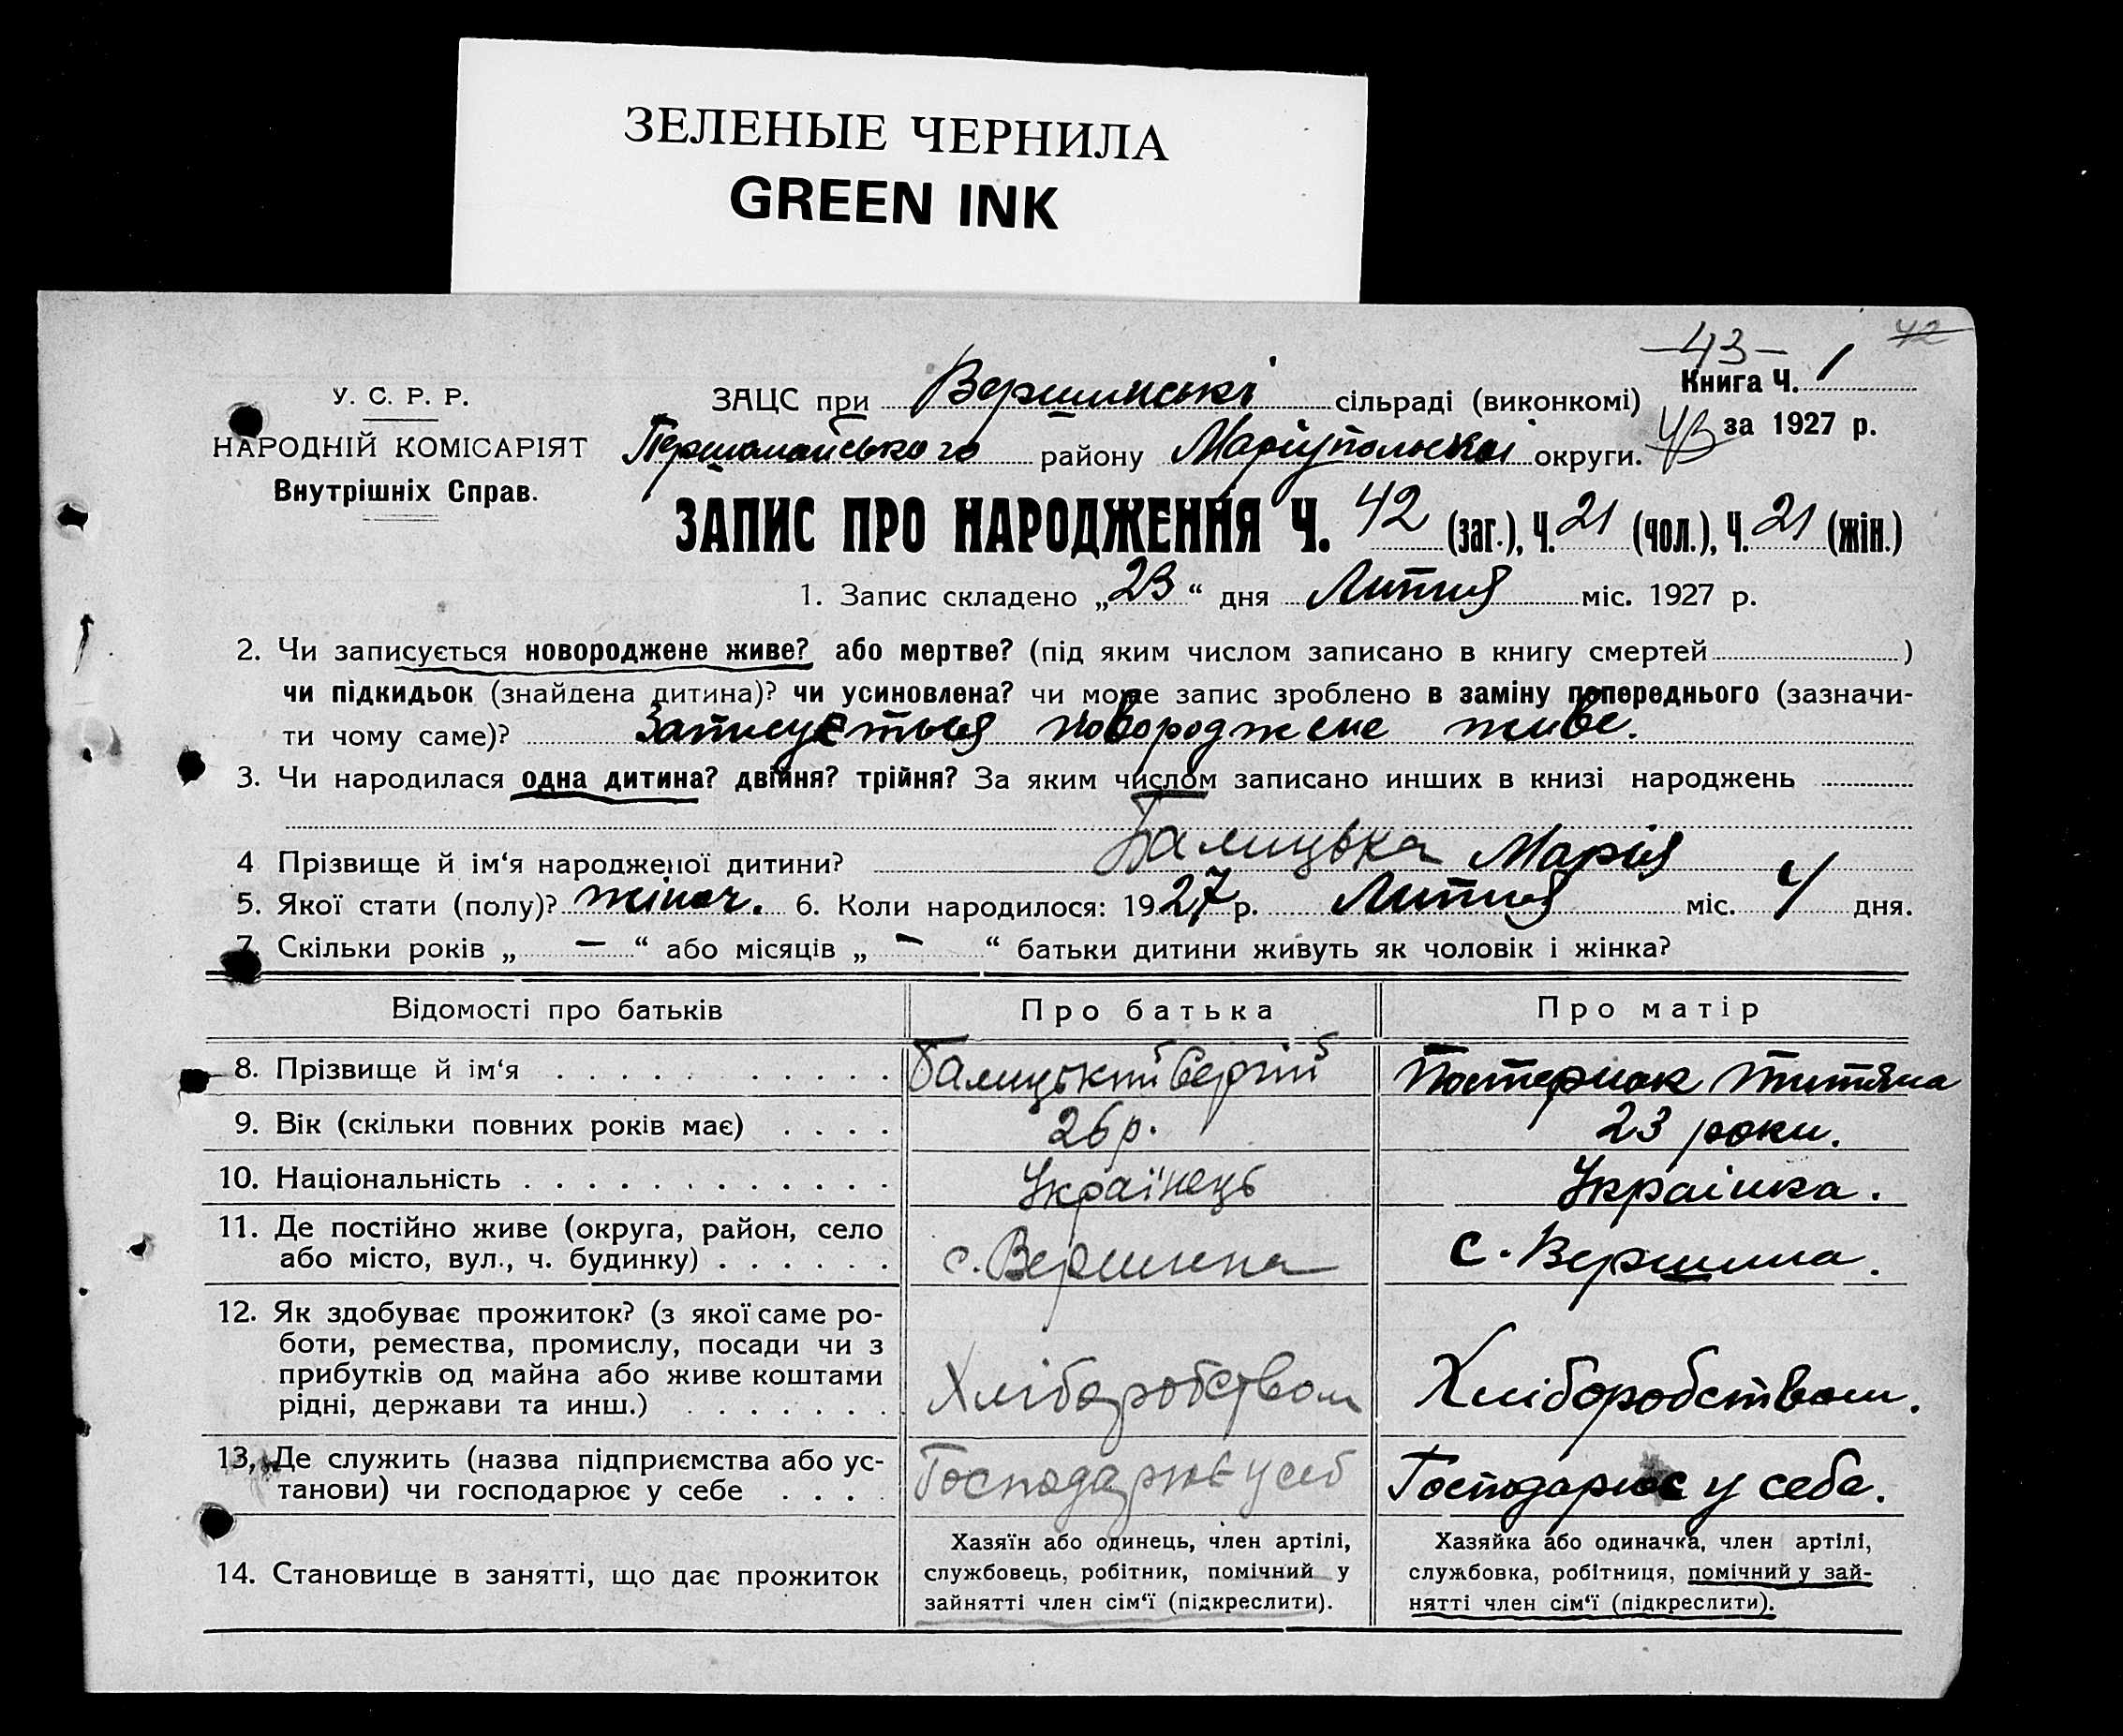 ЗЕЛЕНЫЕ ЧЕРНИЛА
GREEN INK
42
43
У. С. Р. Р.
НАРОДНІЙ КОМІСАРІЯТ
Внутрішніх Справ.
ЗАЦС при Вершинські сільраді (виконкомі)
Книга Ч. 1
43 за 1927 р.
Першомайського району Маріупольскої округи.
ЗАПИС ПРО НАРОДЖЕННЯ Ч. 42 (заг.), Ч. 21 (чол.), Ч. 21 (жін.)
1. Запис складено „23“ дня Лютия міс. 1927 р.
2. Чи записується новороджене живе? або мертве? (під яким числом записано в книгу смертей )
чи підкидьок (знайдена дитина)? чи усиновлена? чи може запис зроблено в заміну попереднього (зазначи-
ти чому саме)? Записується новороджене живе.
3. Чи народилася одна дитина? двійня? трійня? За яким числом записано инших в книзі народжень
4 Прізвище й ім‘я народженої дитини? Балицька Марія
5. Якої стати (полу)? жіноч. 6. Коли народилося: 1927 р. Лютия міс. 4 дня.
7. Скільки років „ — “ або місяців „ — “ батьки дитини живуть як чоловік і жінка?
Відомості про батьків
Про батька
Про матір
8. Прізвище й ім‘я
Балицький Сергій
Постернак Титяна
9. Вік (скільки повних років має)
26 р.
23 роки.
10. Національність
Українець
Українка.
11. Де постійно живе (округа, район, село
або місто, вул., ч. будинку)
с. Вершина
с. Вершина.
12. Як здобуває прожиток? (з якої саме ро-
боти, ремества, промислу, посади чи з
прибутків од майна або живе коштами
рідні, держави та инш.)
Хліборобством
Хліборобством.
13. Де служить (назва підприємства або ус-
танови) чи господарює у себе
Господарює у себ
Господарює у себе.
14. Становище в занятті, що дає прожиток
Хазяїн або одинець, член артілі,
службовець, робітник, помічний у
зайнятті член сім‘ї (підкреслити).
Хазяйка або одиначка, член артілі,
службовка, робітниця, помічний у зай-
нятті член сім‘ї (підкреслити).